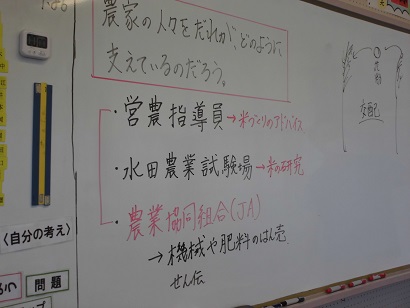 農家の人々をだれが、どのように
支えているのだろう。
・営農指導員→米づくりのアドバイス
・水田農業試験場→米の研究
・農業協同組合(JA)
→機械や肥料のはん売
せん伝
〈自分の考え〉
問題